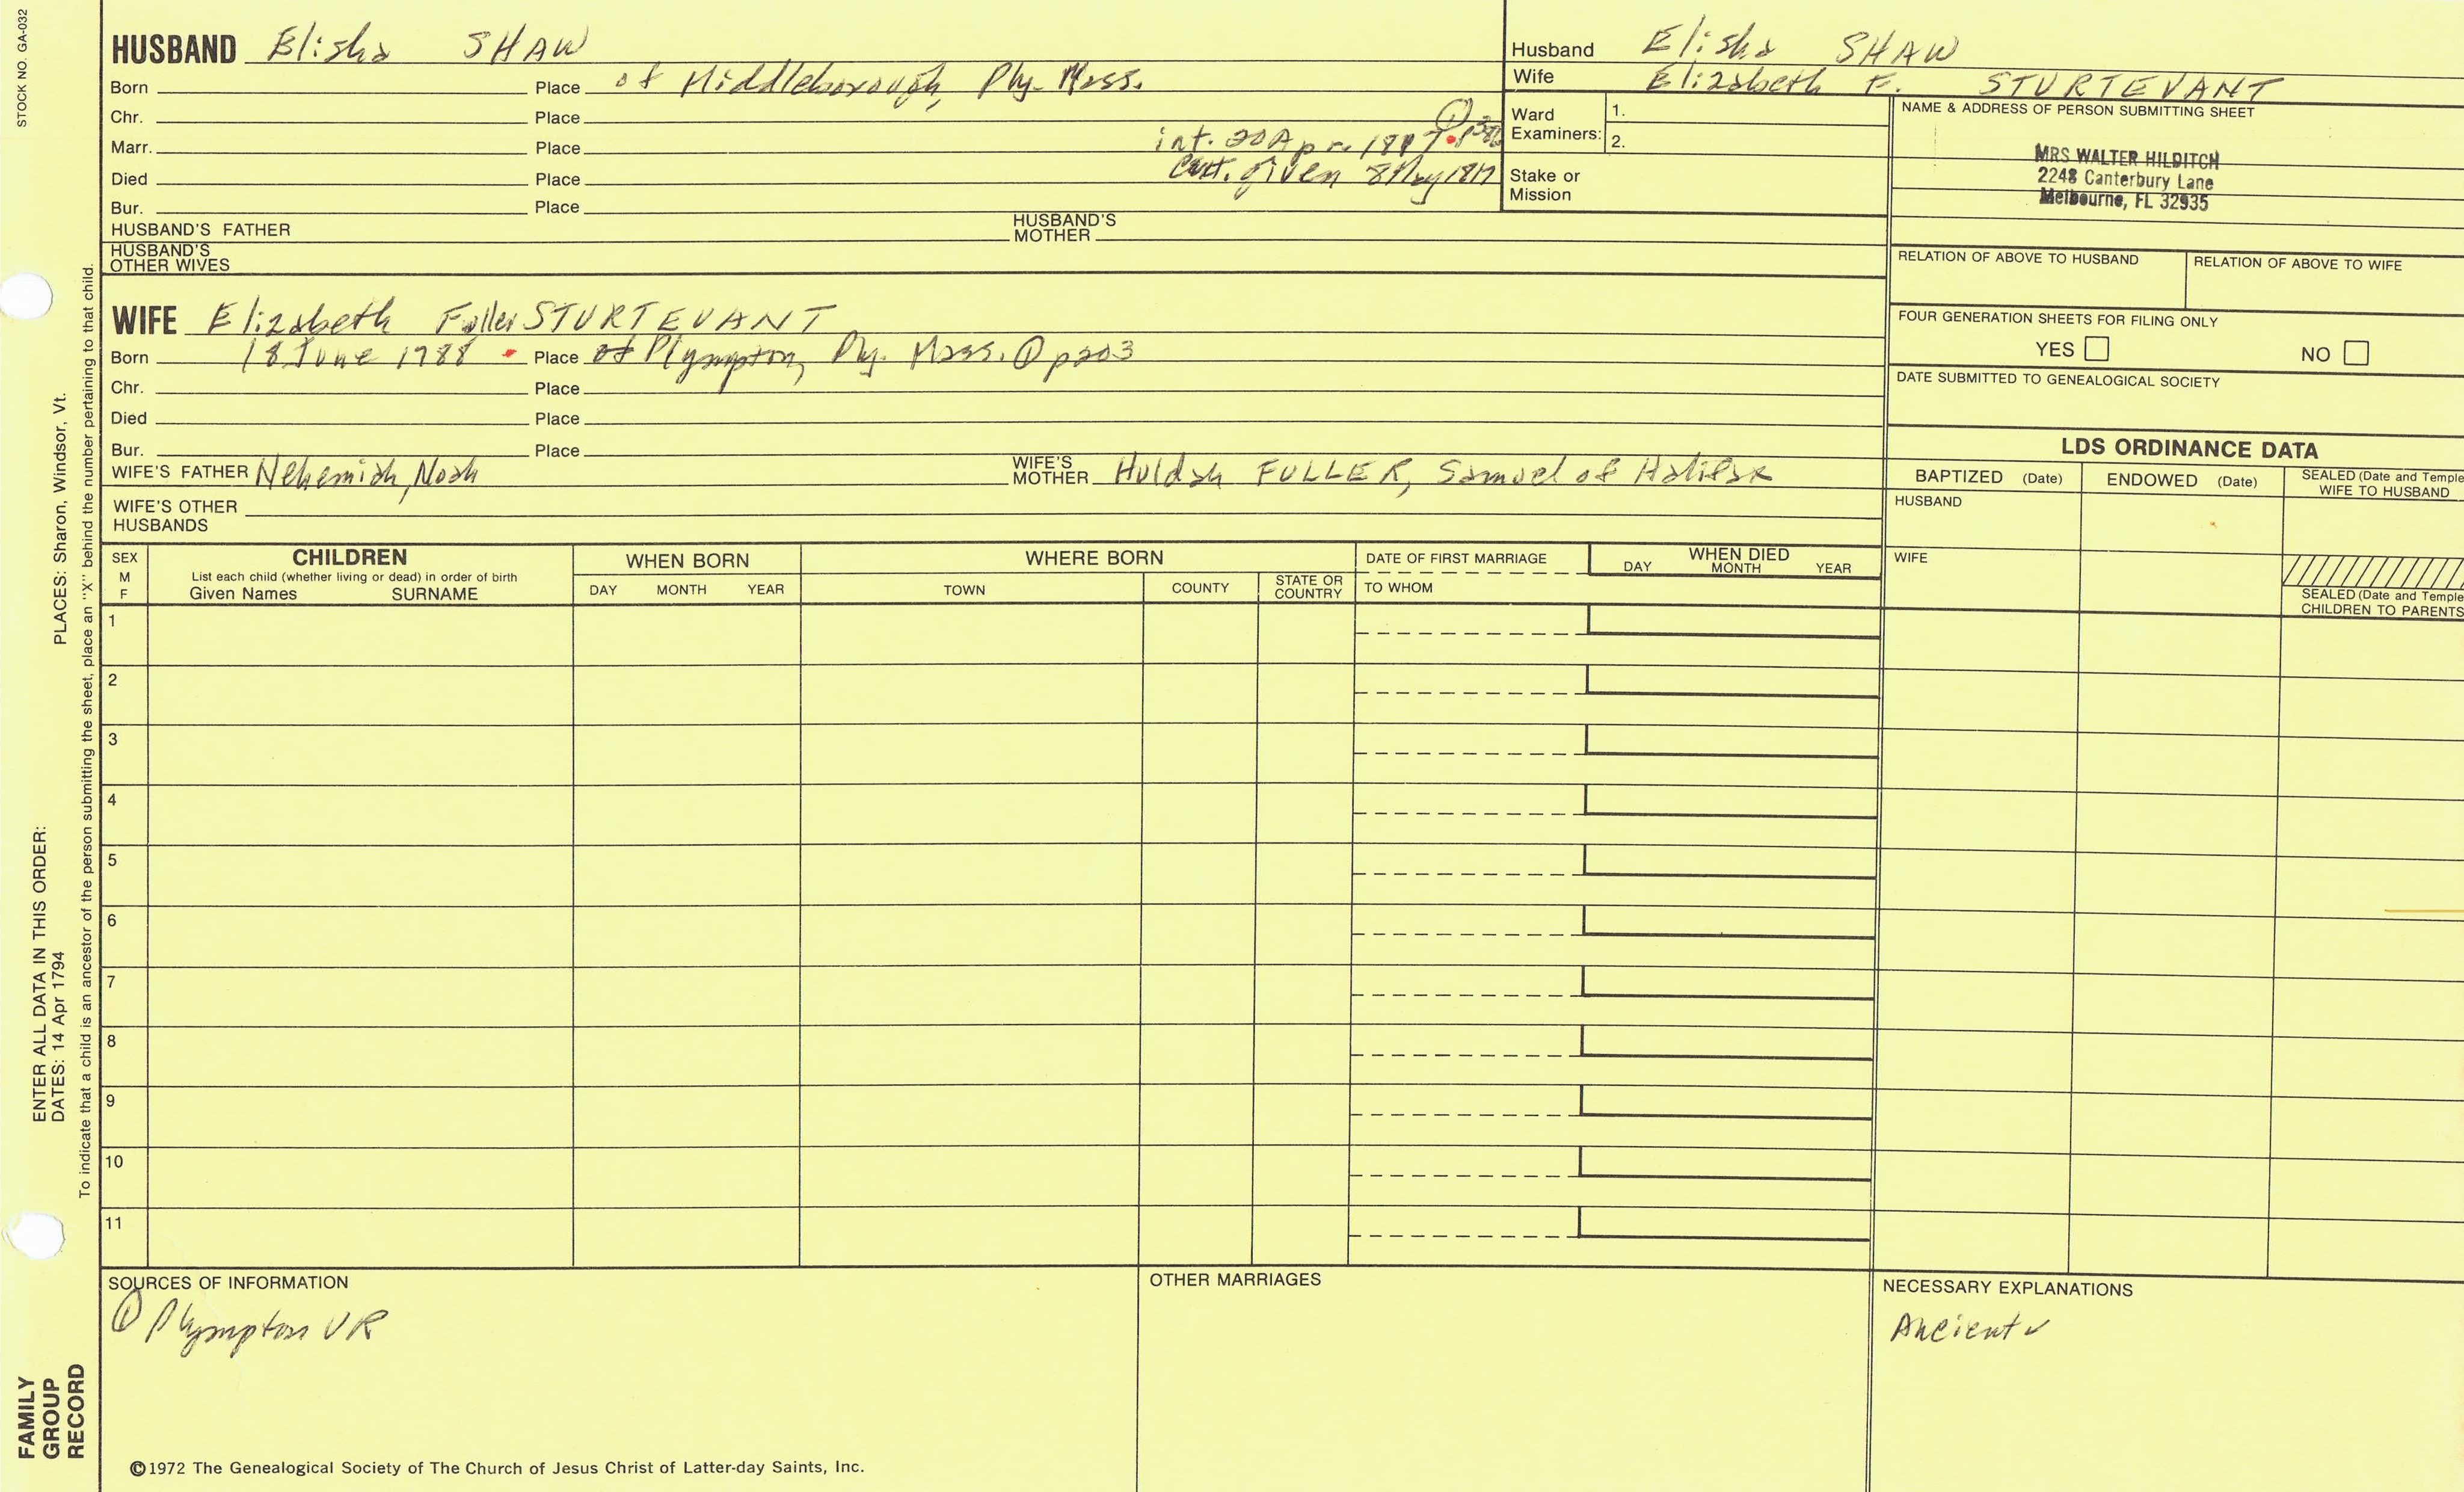 STOCK NO. GA-032
HUSBAND Elisha SHAW
Born Place of Middleborough, Ply. Mass.
Chr. Place
Marr. Place int. 20 Apr. 1817
Died Place Cert. given 8 May 1817
Bur. Place
HUSBAND'S FATHER HUSBAND'S MOTHER
HUSBAND'S OTHER WIVES
Husband Elisha SHAW
Wife Elizabeth F. STURTEVANT
Ward Examiners: 1.
2.
Stake or Mission
NAME & ADDRESS OF PERSON SUBMITTING SHEET
MRS WALTER HILDITCH
2248 Canterbury Lane
Melbourne, FL 32935
RELATION OF ABOVE TO HUSBAND RELATION OF ABOVE TO WIFE
FOUR GENERATION SHEETS FOR FILING ONLY
YES NO
DATE SUBMITTED TO GENEALOGICAL SOCIETY
WIFE Elizabeth Fuller STURTEVANT
Born 18 June 1788 Place of Plympton, Ply. Mass. ① p203
Chr. Place
Died Place
Bur. Place
WIFE'S FATHER Nehemiah, Noah WIFE'S MOTHER Huldah FULLER, Samuel of Halifax
WIFE'S OTHER HUSBANDS
LDS ORDINANCE DATA
BAPTIZED (Date) ENDOWED (Date) SEALED (Date and Temple
WIFE TO HUSBAND
HUSBAND
WIFE
SEALED (Date and Temple
CHILDREN TO PARENTS
SEX
M
F
CHILDREN
List each child (whether living or dead) in order of birth
Given Names SURNAME
WHEN BORN
DAY MONTH YEAR
WHERE BORN
TOWN COUNTY STATE OR COUNTRY
DATE OF FIRST MARRIAGE
TO WHOM
WHEN DIED
DAY MONTH YEAR
1
2
3
4
5
6
7
8
9
10
11
SOURCES OF INFORMATION
① Plympton VR
OTHER MARRIAGES
NECESSARY EXPLANATIONS
Ancient ✓
©1972 The Genealogical Society of The Church of Jesus Christ of Latter-day Saints, Inc.
FAMILY
GROUP
RECORD
ENTER ALL DATA IN THIS ORDER:
DATES: 14 Apr 1794
PLACES: Sharon, Windsor, Vt.
To indicate that a child is an ancestor of the person submitting the sheet, place an "X" behind the number pertaining to that child.